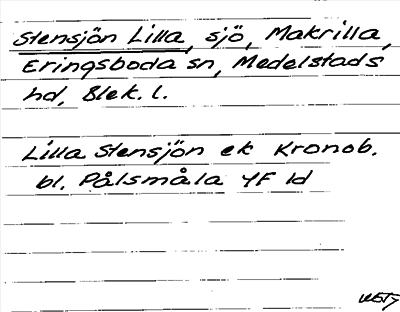 Stensjön Lilla, sjö, Makrilla,
Eringsboda sn, Medelstads
hd, Blek. l.
Lilla Stensjön ek Kronob.
bl. Pålsmåla YF 1d